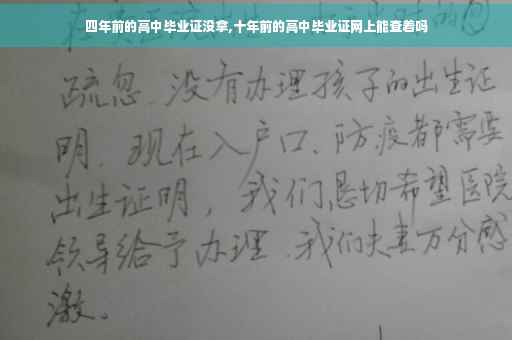 四年前的高中毕业证没拿,十年前的高中毕业证网上能查着吗
疏忽.没有办理孩子的出生证
明.现在入户口、防疫都需要
出生证明，我们恳切希望医院
领导给予办理.我们夫妻万分感
激。